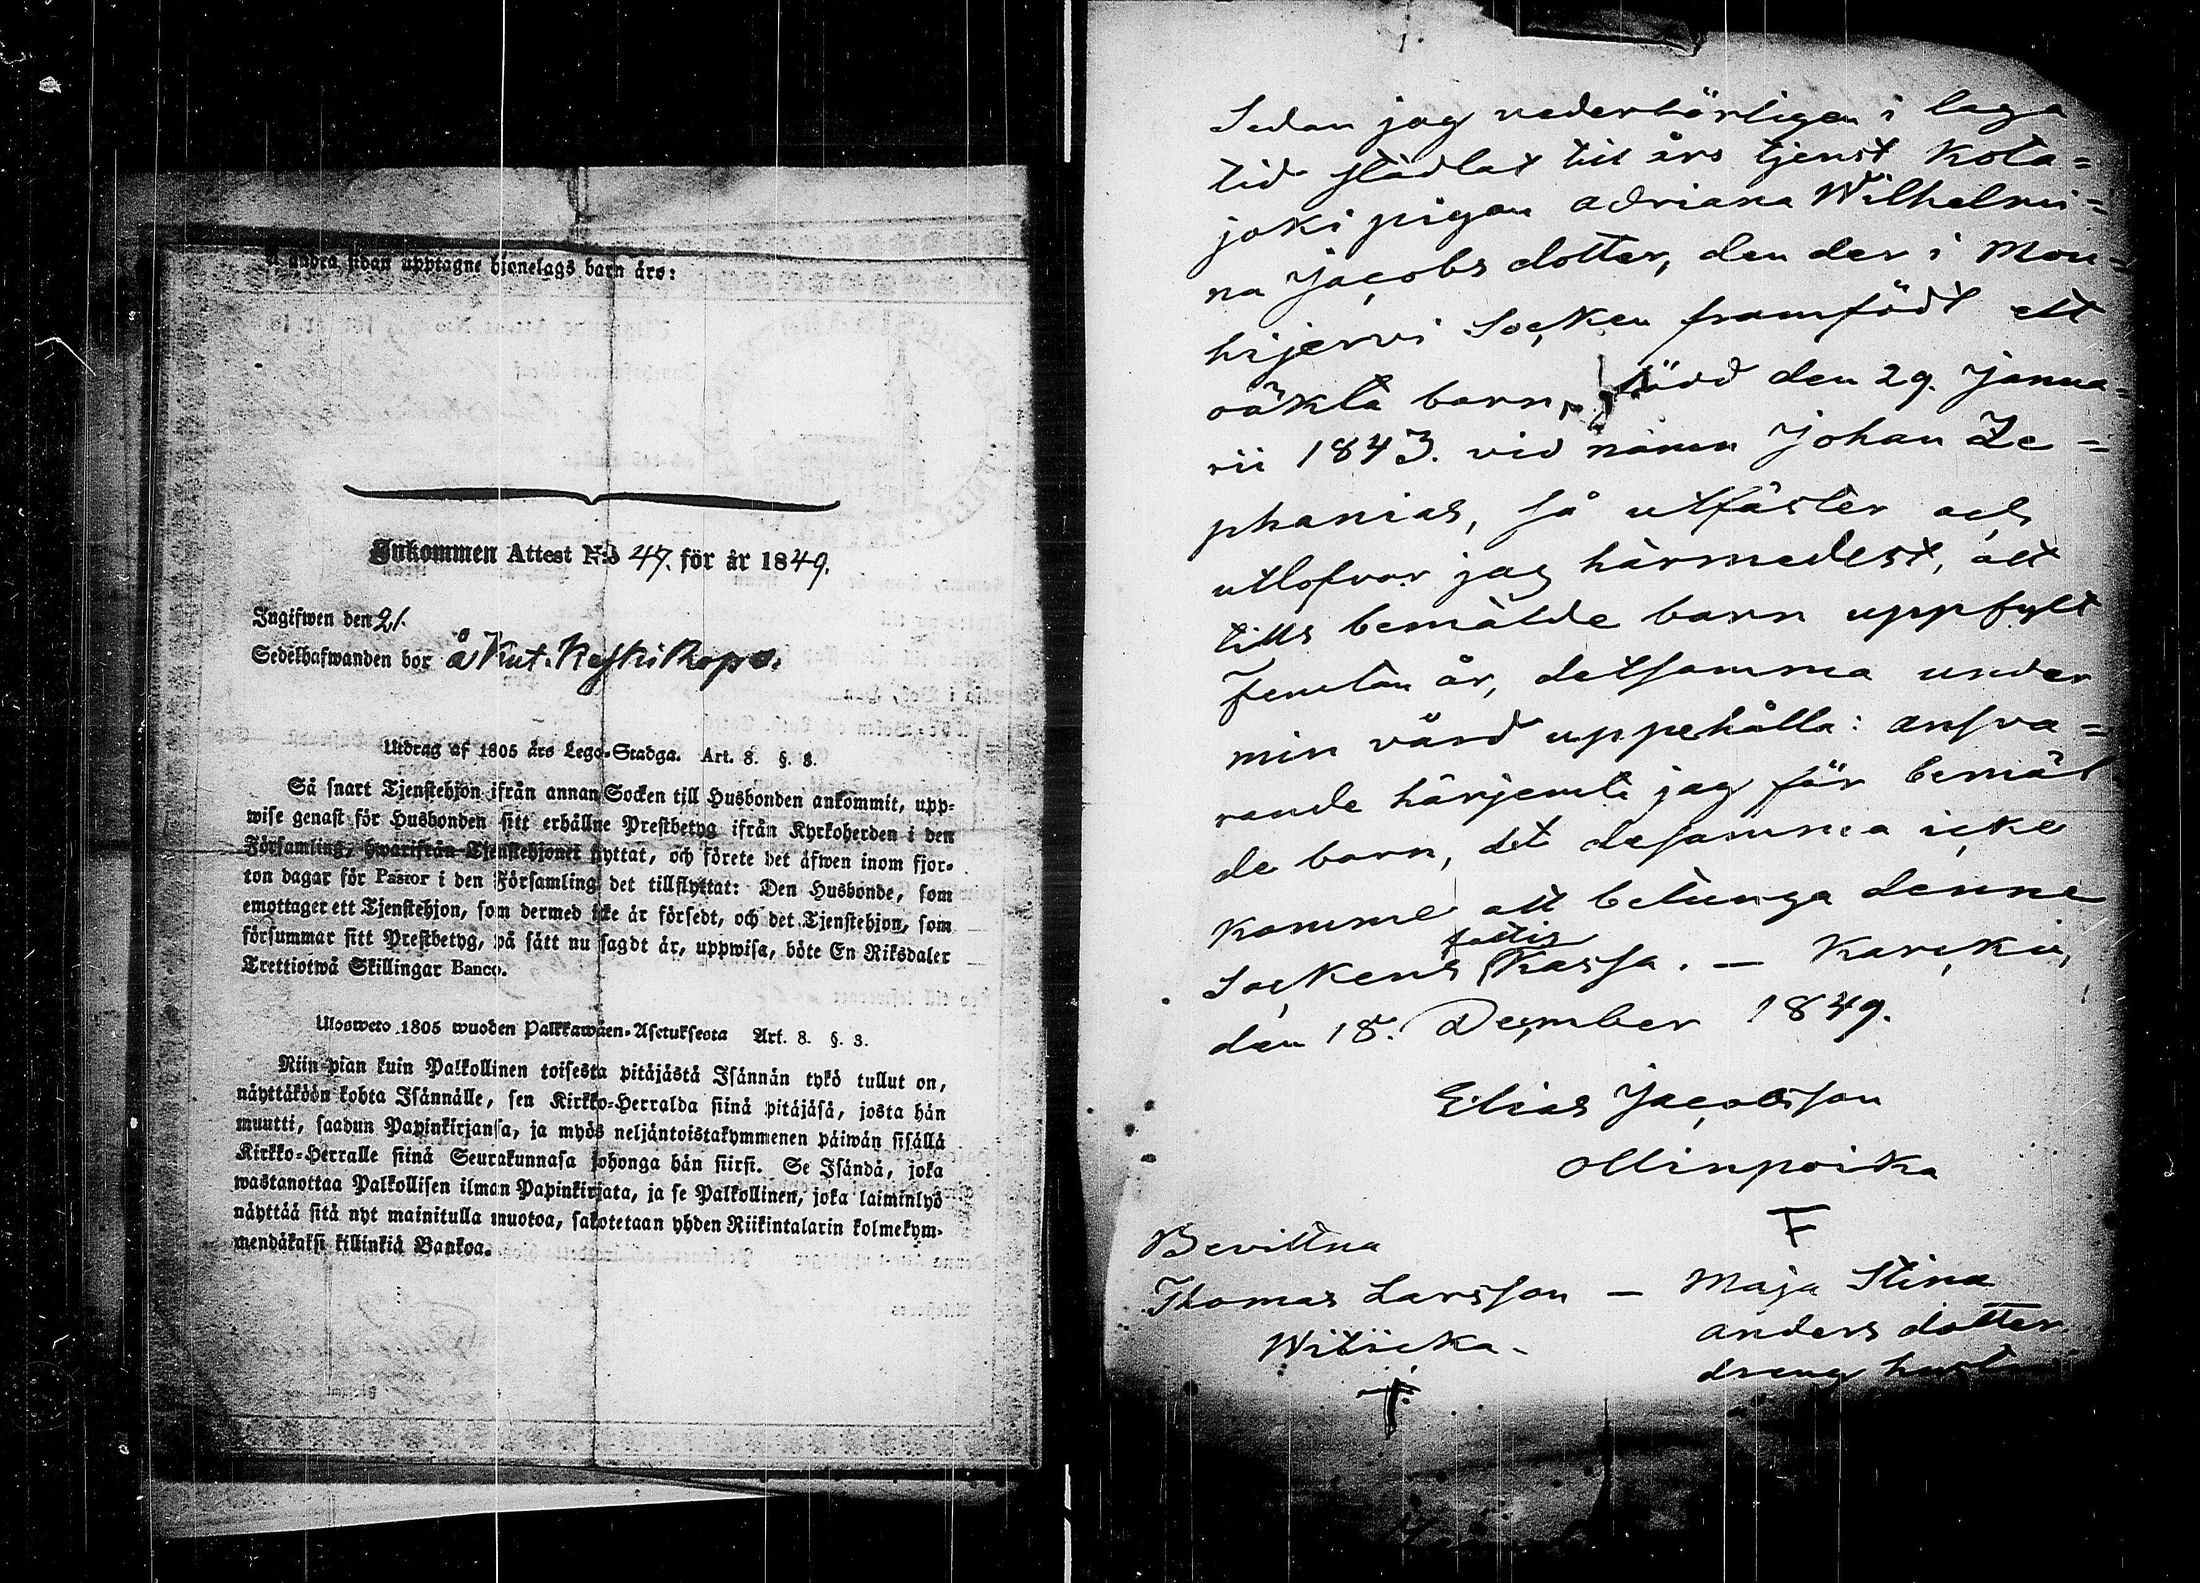 å andra sidan upptagne hjonelags barn äro:
Inkommen Attest N:o 47. för år 1849.
Ingifwen den 21.
Sedelhafwanden bor å Kut. Keski Ropo.
Utdrag af 1805 års Lego-Stadga. Art. 8. §. 8.
Så snart Tjenstehjon ifrån annan Socken till Husbonden ankommit, upp-
wise genast för Husbonden sitt erhållne Prestbetyg ifrån Kyrkoherden i den
Församling, hwarifrån Tjenstehjonet flyttat, och förete det äfwen inom fjor-
ton dagar för Pastor i den Församling det tillflyttat: Den Husbonde, som
emottager ett Tjenstehjon, som dermed icke är försedt, och det Tjenstehjon, som
försummar sitt Prestbetyg, på sätt nu sagdt är, uppwisa, böte En Riksdaler
Trettiotwå Skillingar Banco.
Ulosweto 1805 wuoden Palkkawäen-Asetuksesta Art. 8. §. 3.
Niin pian kuin Palkollinen toisesta pitäjästä Isännän tykö tullut on,
näyttäköön kohta Isännälle, sen Kirkko-Herralda siinä pitäjäsä, josta hän
muutti, saadun Papinkirjansa, ja myös neljäntoistakymmenen päiwän sisällä
Kirkko-Herralle siinä Seurakunnasa johonga hän siirsi. Se Isändä, joka
wastanottaa Palkollisen ilman Papinkirjata, ja se Palkollinen, joka laiminlyö
näyttää sitä nyt mainitulla muotoa, sakotetaan yhden Riikintalarin kolmekym-
mendäkaksi killinkiä Bankoa.
Sedan jag vederbörligen i laga
tid städlat till års tjenst Kota=
joki pigan Adriana Wilhelmi=
na Jacobs dotter, den der i Mou=
hijervi Socken framfödt ett
oäkta barn, född den 29. Janua=
rii 1843. vid namn Johan Ze=
phanias, så utfäster och
utlofvar jag härmedelst, att
tills bemälde barn uppfylt
Femton år, detsamma under
min vård uppehålla: ansva=
rande härjemte jag för bemäl
de barn, det desamma icke
komme att betunga denne
Sockens fattig Kassa. — Karckia,
den 18. December 1849.
Elias Jacobsson
Ollinpoika
F
Bevittna
Thomas Larsson — Maja Stina
Witicka. Anders dotter
dreng hustru